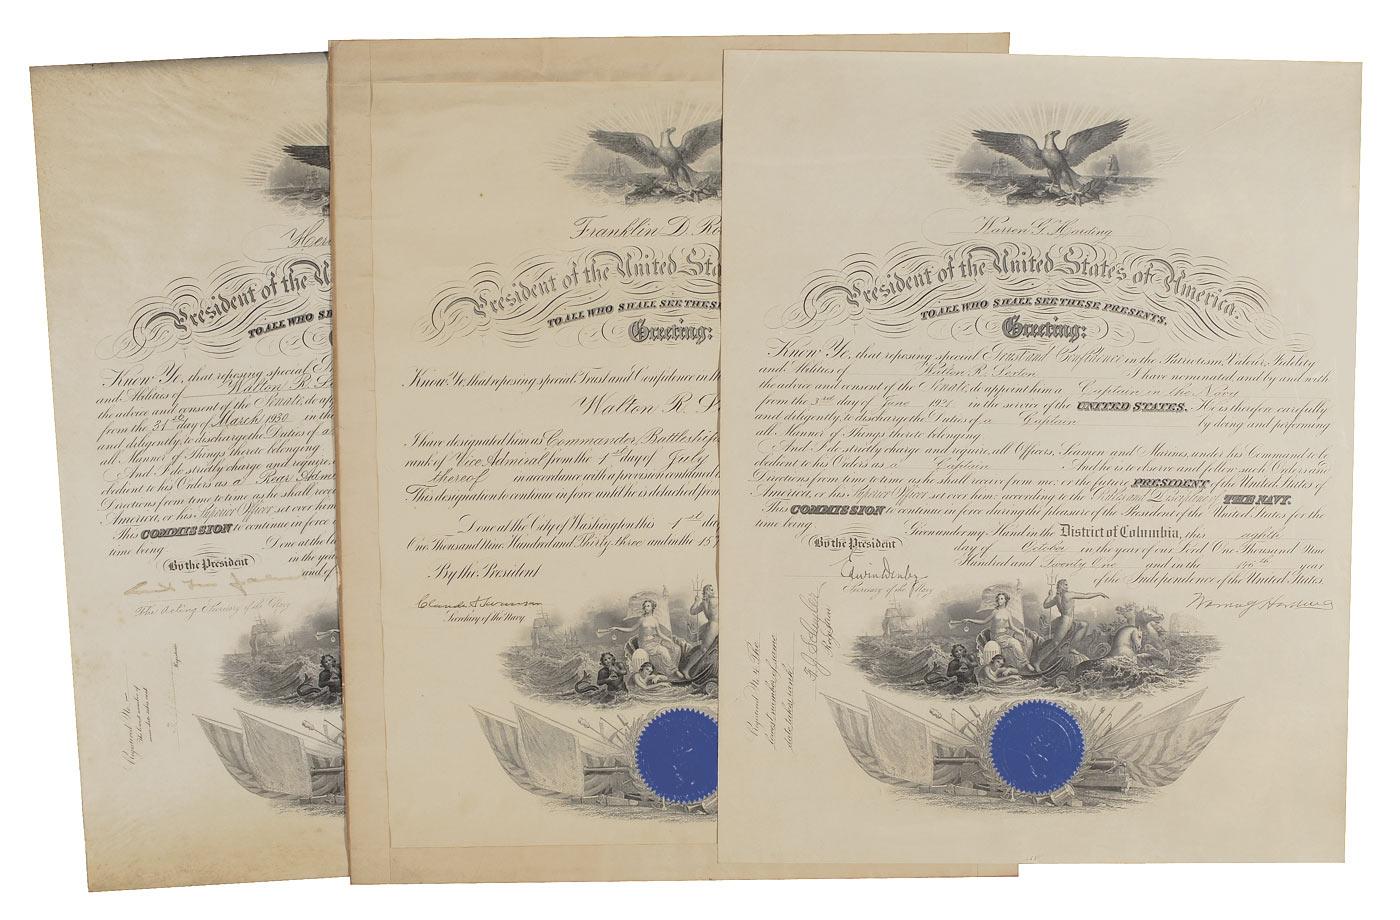 Her
President of the U
TO ALL WHO SH
Know Ye, that reposing special
and Abilities of Walton R. Se
the advice and consent of the Senate, do ap
from the 31st day of March 1930 in the
and diligently to discharge the Duties of a
all Manner of Things thereto belonging
And I do strictly charge and require
obedient to his Orders as a Rear Adm
Directions from time to time as he shall rece
America, or his Superior Officer set over him
This COMMISSION to continue in force
time being Done at the
By the President in the yea
and of
The Acting Secretary of the Navy
Registered No.
Franklin D. Ro
President of the United Sta
TO ALL WHO SHALL SEE THESE
Greeting:
Know Ye, that reposing special Trust and Confidence in th
Walton R. S
I have designated him as Commander Battleship
rank of Vice Admiral from the 1st day of July
thereof in accordance with a provision contained
This designation to continue in force until he is detached from
Done at the City of Washington this 1st da
One Thousand Nine Hundred and Thirty three and in the 15
By the President
Claude A. Swanson
Secretary of the Navy.
Warren G. Harding
President of the United States of America.
TO ALL WHO SHALL SEE THESE PRESENTS,
Greeting:
Know Ye, that reposing special Trust and Confidence in the Patriotism, Valour, Fidelity
and Abilities of Walton R. Sexton I have nominated, and by and with
the advice and consent of the Senate, do appoint him a Captain in the Navy
from the 3rd day of June 1921 in the service of the UNITED STATES. He is therefore carefully
and diligently to discharge the Duties of a Captain by doing and performing
all Manner of Things thereto belonging
And I do strictly charge and require all Officers, Seamen and Marines, under his Command to be
obedient to his Orders as a Captain And he is to observe and follow such Orders and
Directions from time to time as he shall receive from me, or the future PRESIDENT of the United States of
America, or his Superior Officer set over him, according to the Rules and Discipline of THE NAVY.
This COMMISSION to continue in force during the pleasure of the President of the United States for the
time being Given under my Hand in the District of Columbia, this eighth
By the President day of October in the year of our Lord One Thousand Nine
Hundred and Twenty One and in the 146th year
of the Independence of the United States.
Edwin Denby
Secretary of the Navy
Warren G Harding
Register
Registered No. The
lineal number of same
date takes rank